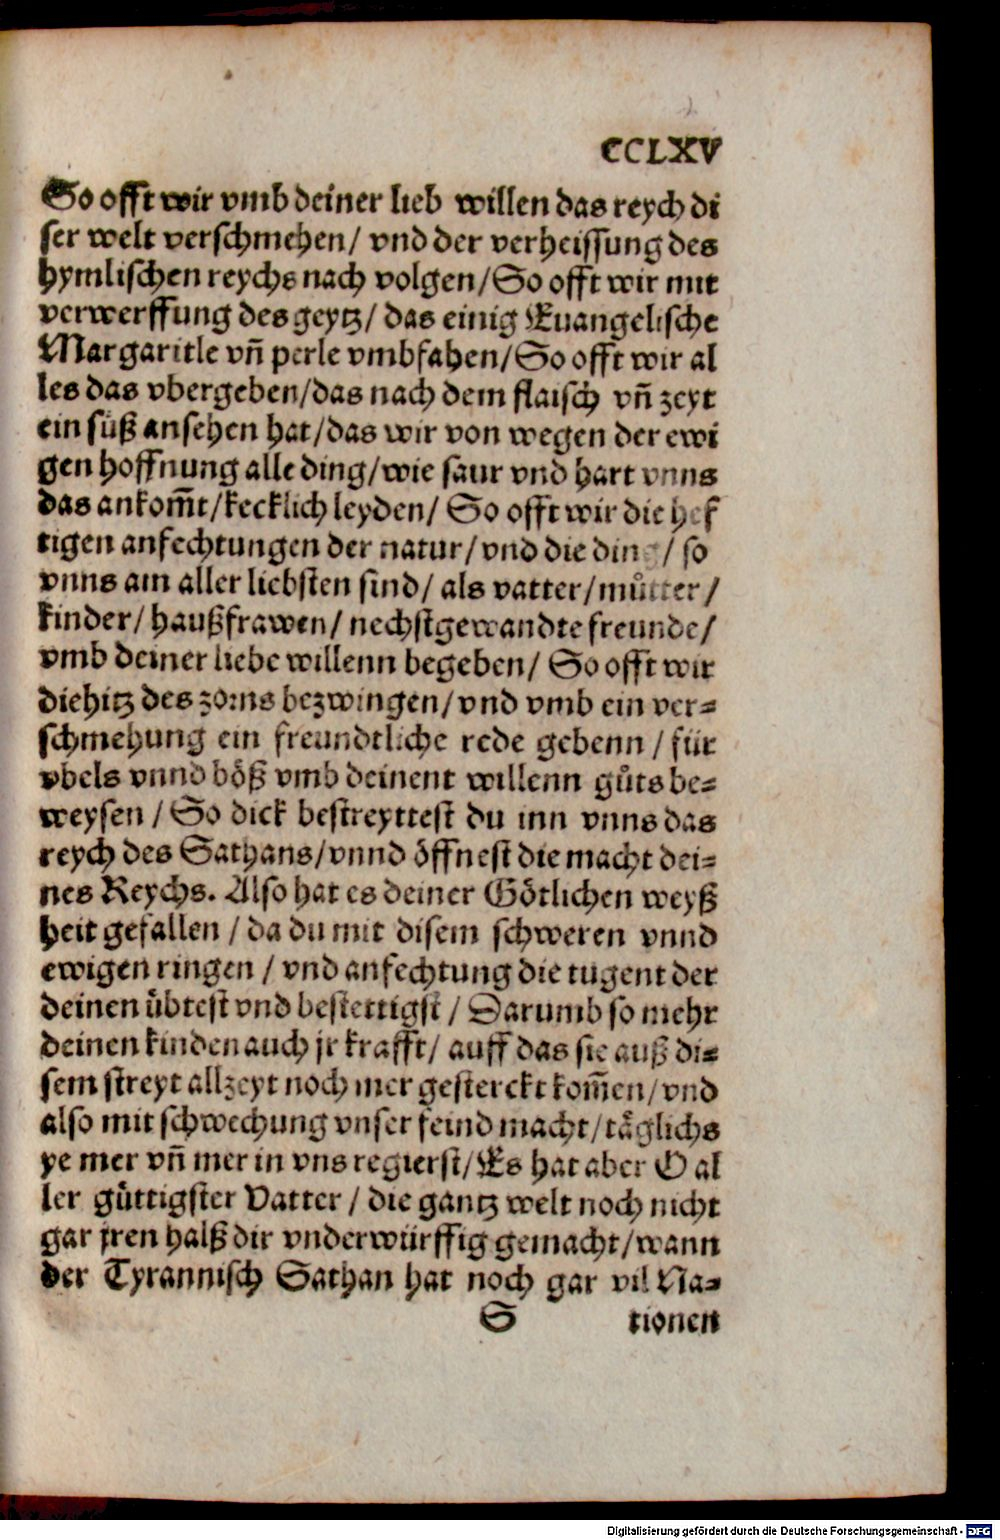 CCLXV
So offt wir vmb deiner lieb willen das reych di
ser welt verschmehen/ vnd der verheissung des
hymlischen reychs nach volgen/So offt wir mit
verwerffung des geytz/ das einig Euangelische
Margaritle vn̄ perle vmbfahen/So offt wir al
les das vbergeben/das nach dem flaisch vn̄ zeyt
ein süß ansehen hat/das wir von wegen der ewi
gen hoffnung alle ding/wie saur vnd hart vnns
das ankom̄t/kecklich leyden/ So offt wir die hef
tigen anfechtungen der natur/vnd die ding/ so
vnns am aller liebsten sind/ als vatter/muͦtter/
kinder/ haußfrawen/ nechstgewandte freunde/
vmb deiner liebe willenn begeben/ So offt wir
diehitz des zorns bezwingen/vnd vmb ein ver⸗
schmehung ein freundtliche rede gebenn / für
vbels vnnd böß vmb deinent willenn guͦts be⸗
weysen / So dick bestreyttest du inn vnns das
reych des Sathans/vnnd öffnest die macht dei⸗
nes Reychs. Also hat es deiner Götlichen weyß
heit gefallen / da du mit disem schweren vnnd
ewigen ringen / vnd anfechtung die tugent der
deinen übtest vnd bestettigst / Darumb so mehr
deinen kinden auch jr krafft/ auff das sie auß di⸗
sem streyt allzeyt noch mer gesterckt kom̄en/vnd
also mit schwechung vnser feind macht/täglichs
ye mer vn̄ mer in vns regierst/Es hat aber O al
ler güttigster Vatter / die gantz welt noch nicht
gar jren halß dir vnderwürffig gemacht/wann
der Tyrannisch Sathan hat noch gar vil Na⸗
S tionen
Digitalisierung gefördert durch die Deutsche Forschungsgemeinschaft - DFG